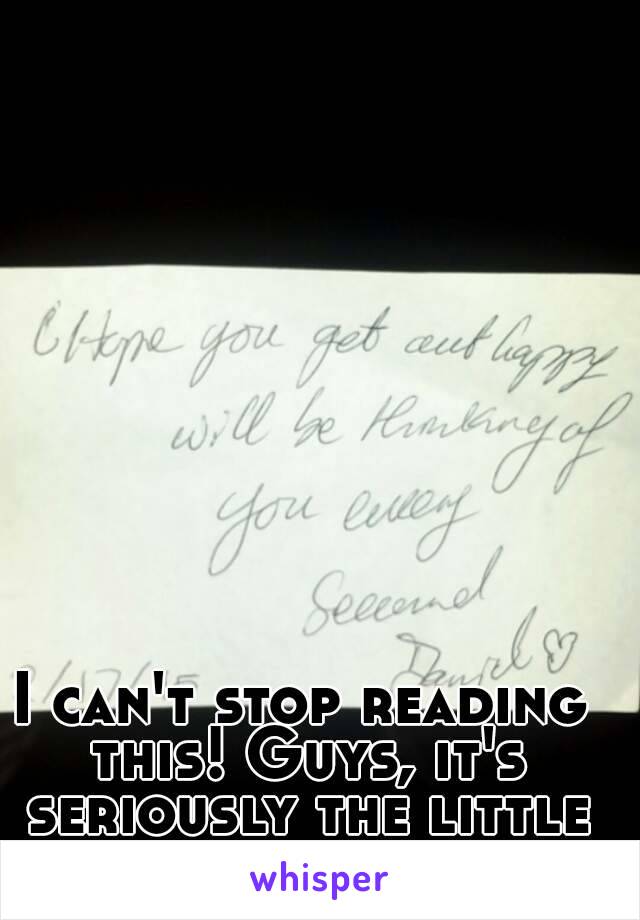 Hope you get out happy
will be thinking of
you every
Second
Daniel ♡
I can't stop reading
this! Guys, it's
seriously the little
whisper